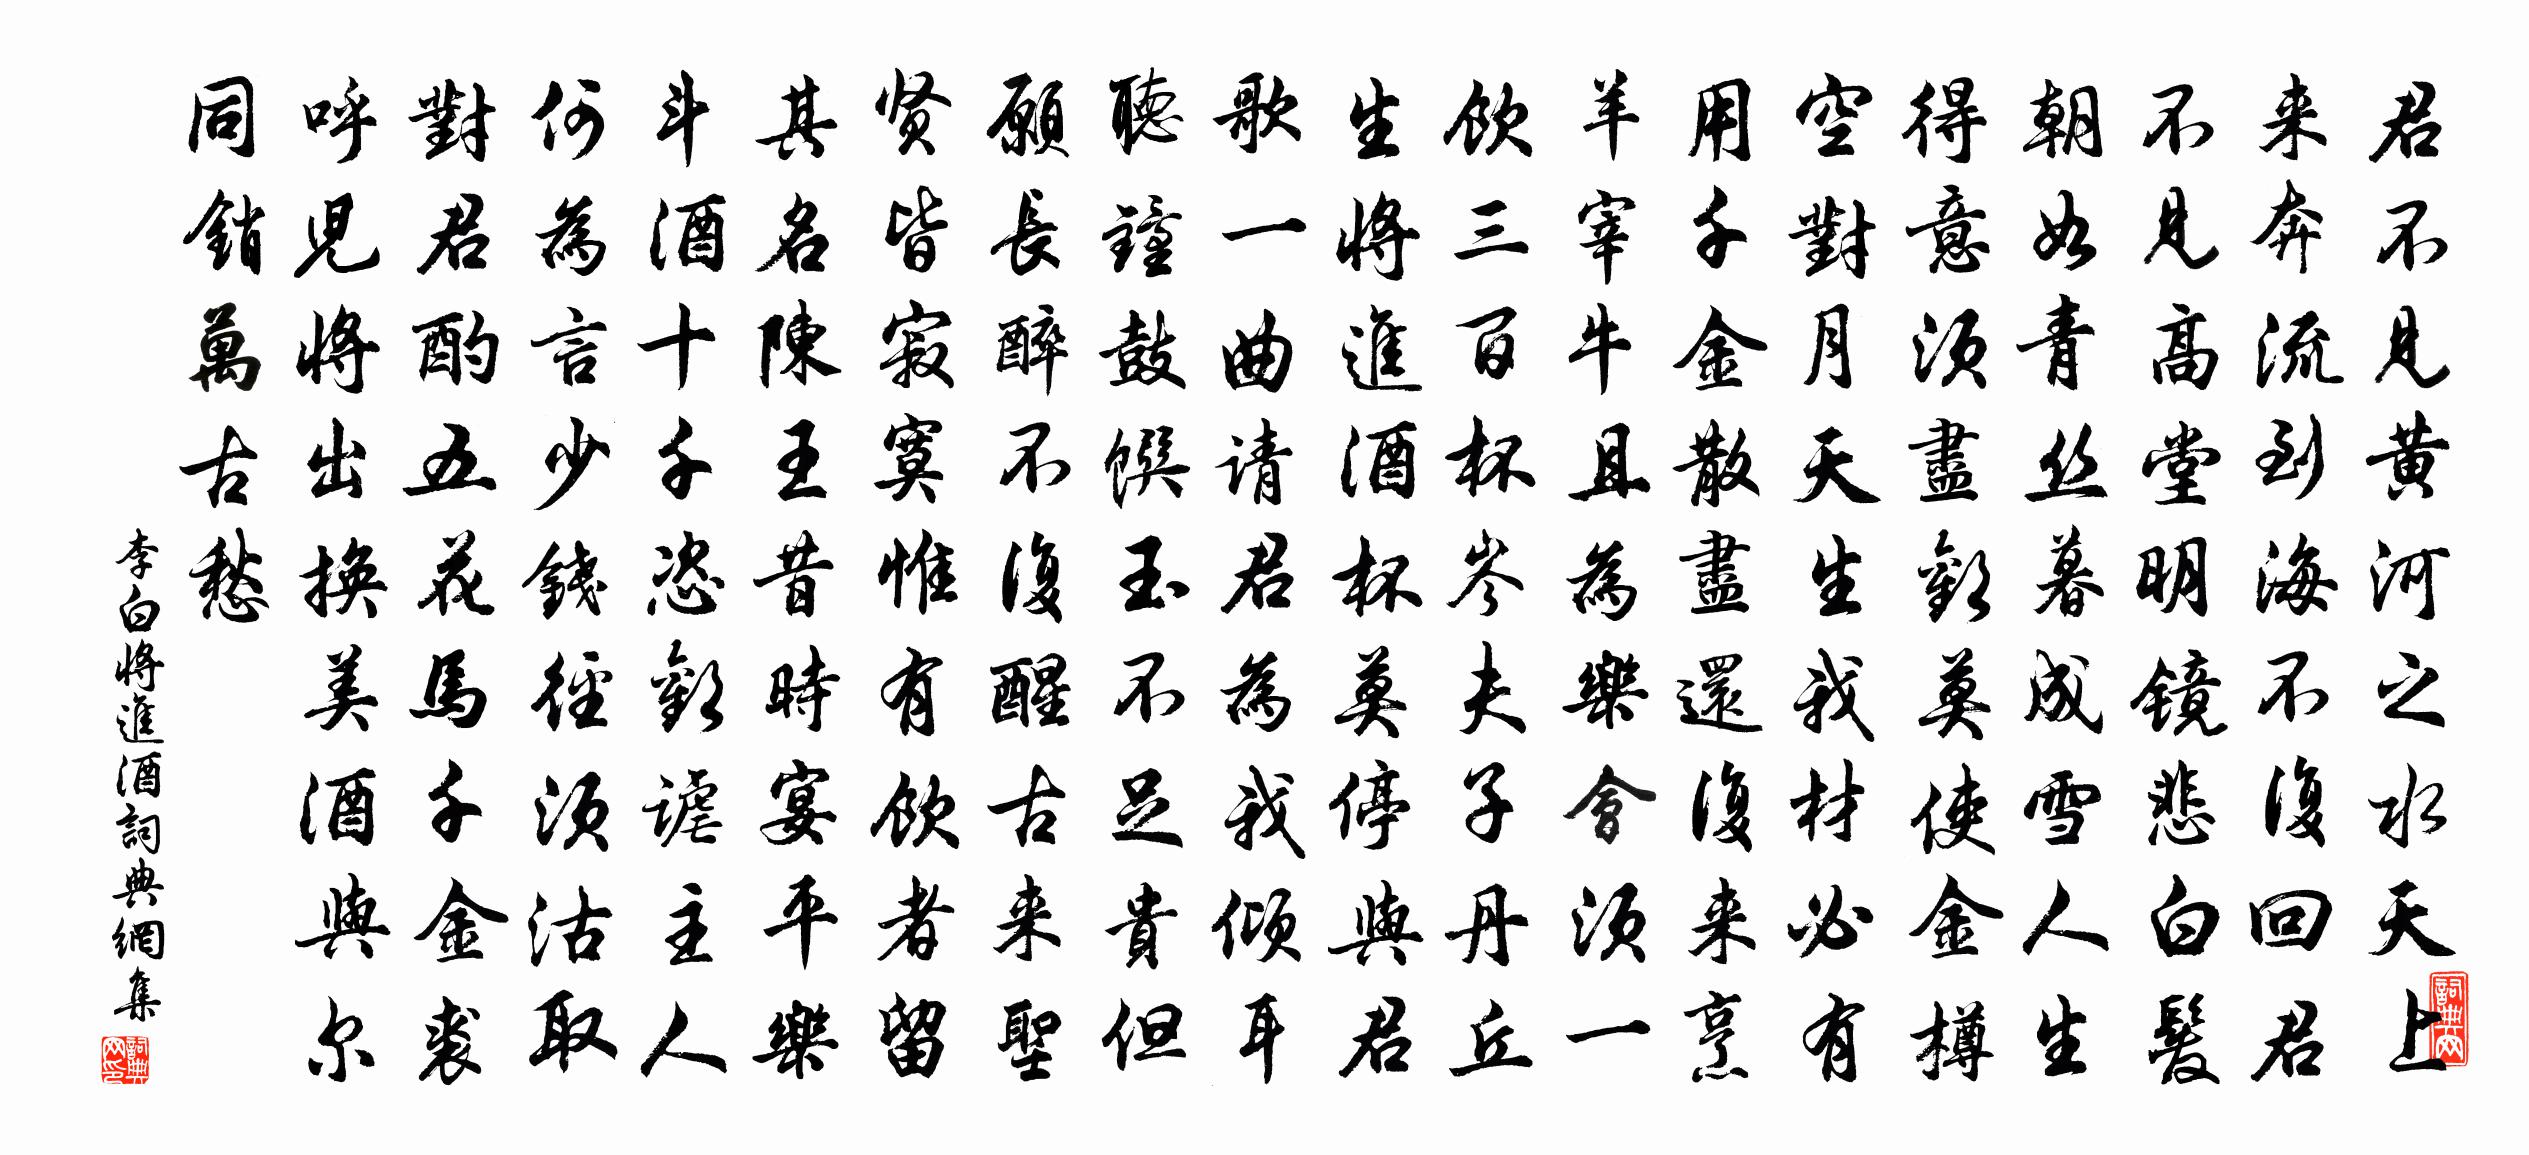 君不見黄河之水天上
来奔流到海不復回君
不見高堂明镜悲白髪
朝如青丝暮成雪人生
得意须盡歡莫使金樽
空對月天生我材必有
用千金散盡還復来烹
羊宰牛且為樂會须一
饮三百杯岑夫子丹丘
生将進酒杯莫停與君
歌一曲请君為我倾耳
聽鐘鼓馔玉不足貴但
願長醉不復醒古来聖
贤皆寂寞惟有饮者留
其名陳王昔時宴平樂
斗酒十千恣歡谑主人
何為言少錢径须沽取
對君酌五花馬千金裘
呼児将出换美酒與尔
同銷萬古愁
李白将進酒詞典網集
詞典网
詞典网印